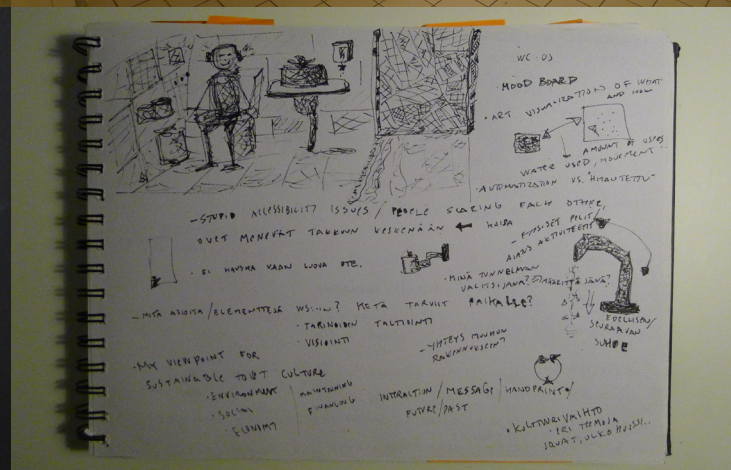 WC-DJ
MOOD BOARD
• ART VISUALIZATIONS OF WHAT
AND HOW
AMOUNT OF USERS
WATER USED, MOVEMENT
• AUTOMATIZATION VS.
- STUPID ACCESSIBILITY ISSUES / PEOPLE SCARING EACH OTHER,
OVET MENEVÄT TAKKUUN KESKENÄÄN ←
- FYYSISET PELIT/
• EI HAUSKA VAAN LUOVA OTE.
• MINÄ TUNNELMAN
VALITSIJANA?
- MITÄ ASIOITA/ELEMENTTEJÄ KETÄ TARVIIT PAIKALLE?
• TARINOIDEN TALTIOINTI
• VISIOINTI
EDELLISEN/
SEURAAVAN
SUHDE
- YHTEYS MUUHUN
RAKENNUKSEEN
• MY VIEWPOINT FOR
SUSTAINABLE TOILET CULTURE
• ENVIRONMENT
• SOCIAL
• ECONOMY
MAINTAINING
FINANCING
INTERACTION / MESSAGE / HANDPRINTS/
FUTURE/PAST
• KULTTUURIVAIHTO
• ERI TEEMOJA
SQUAT, ULKOHUUSSI...